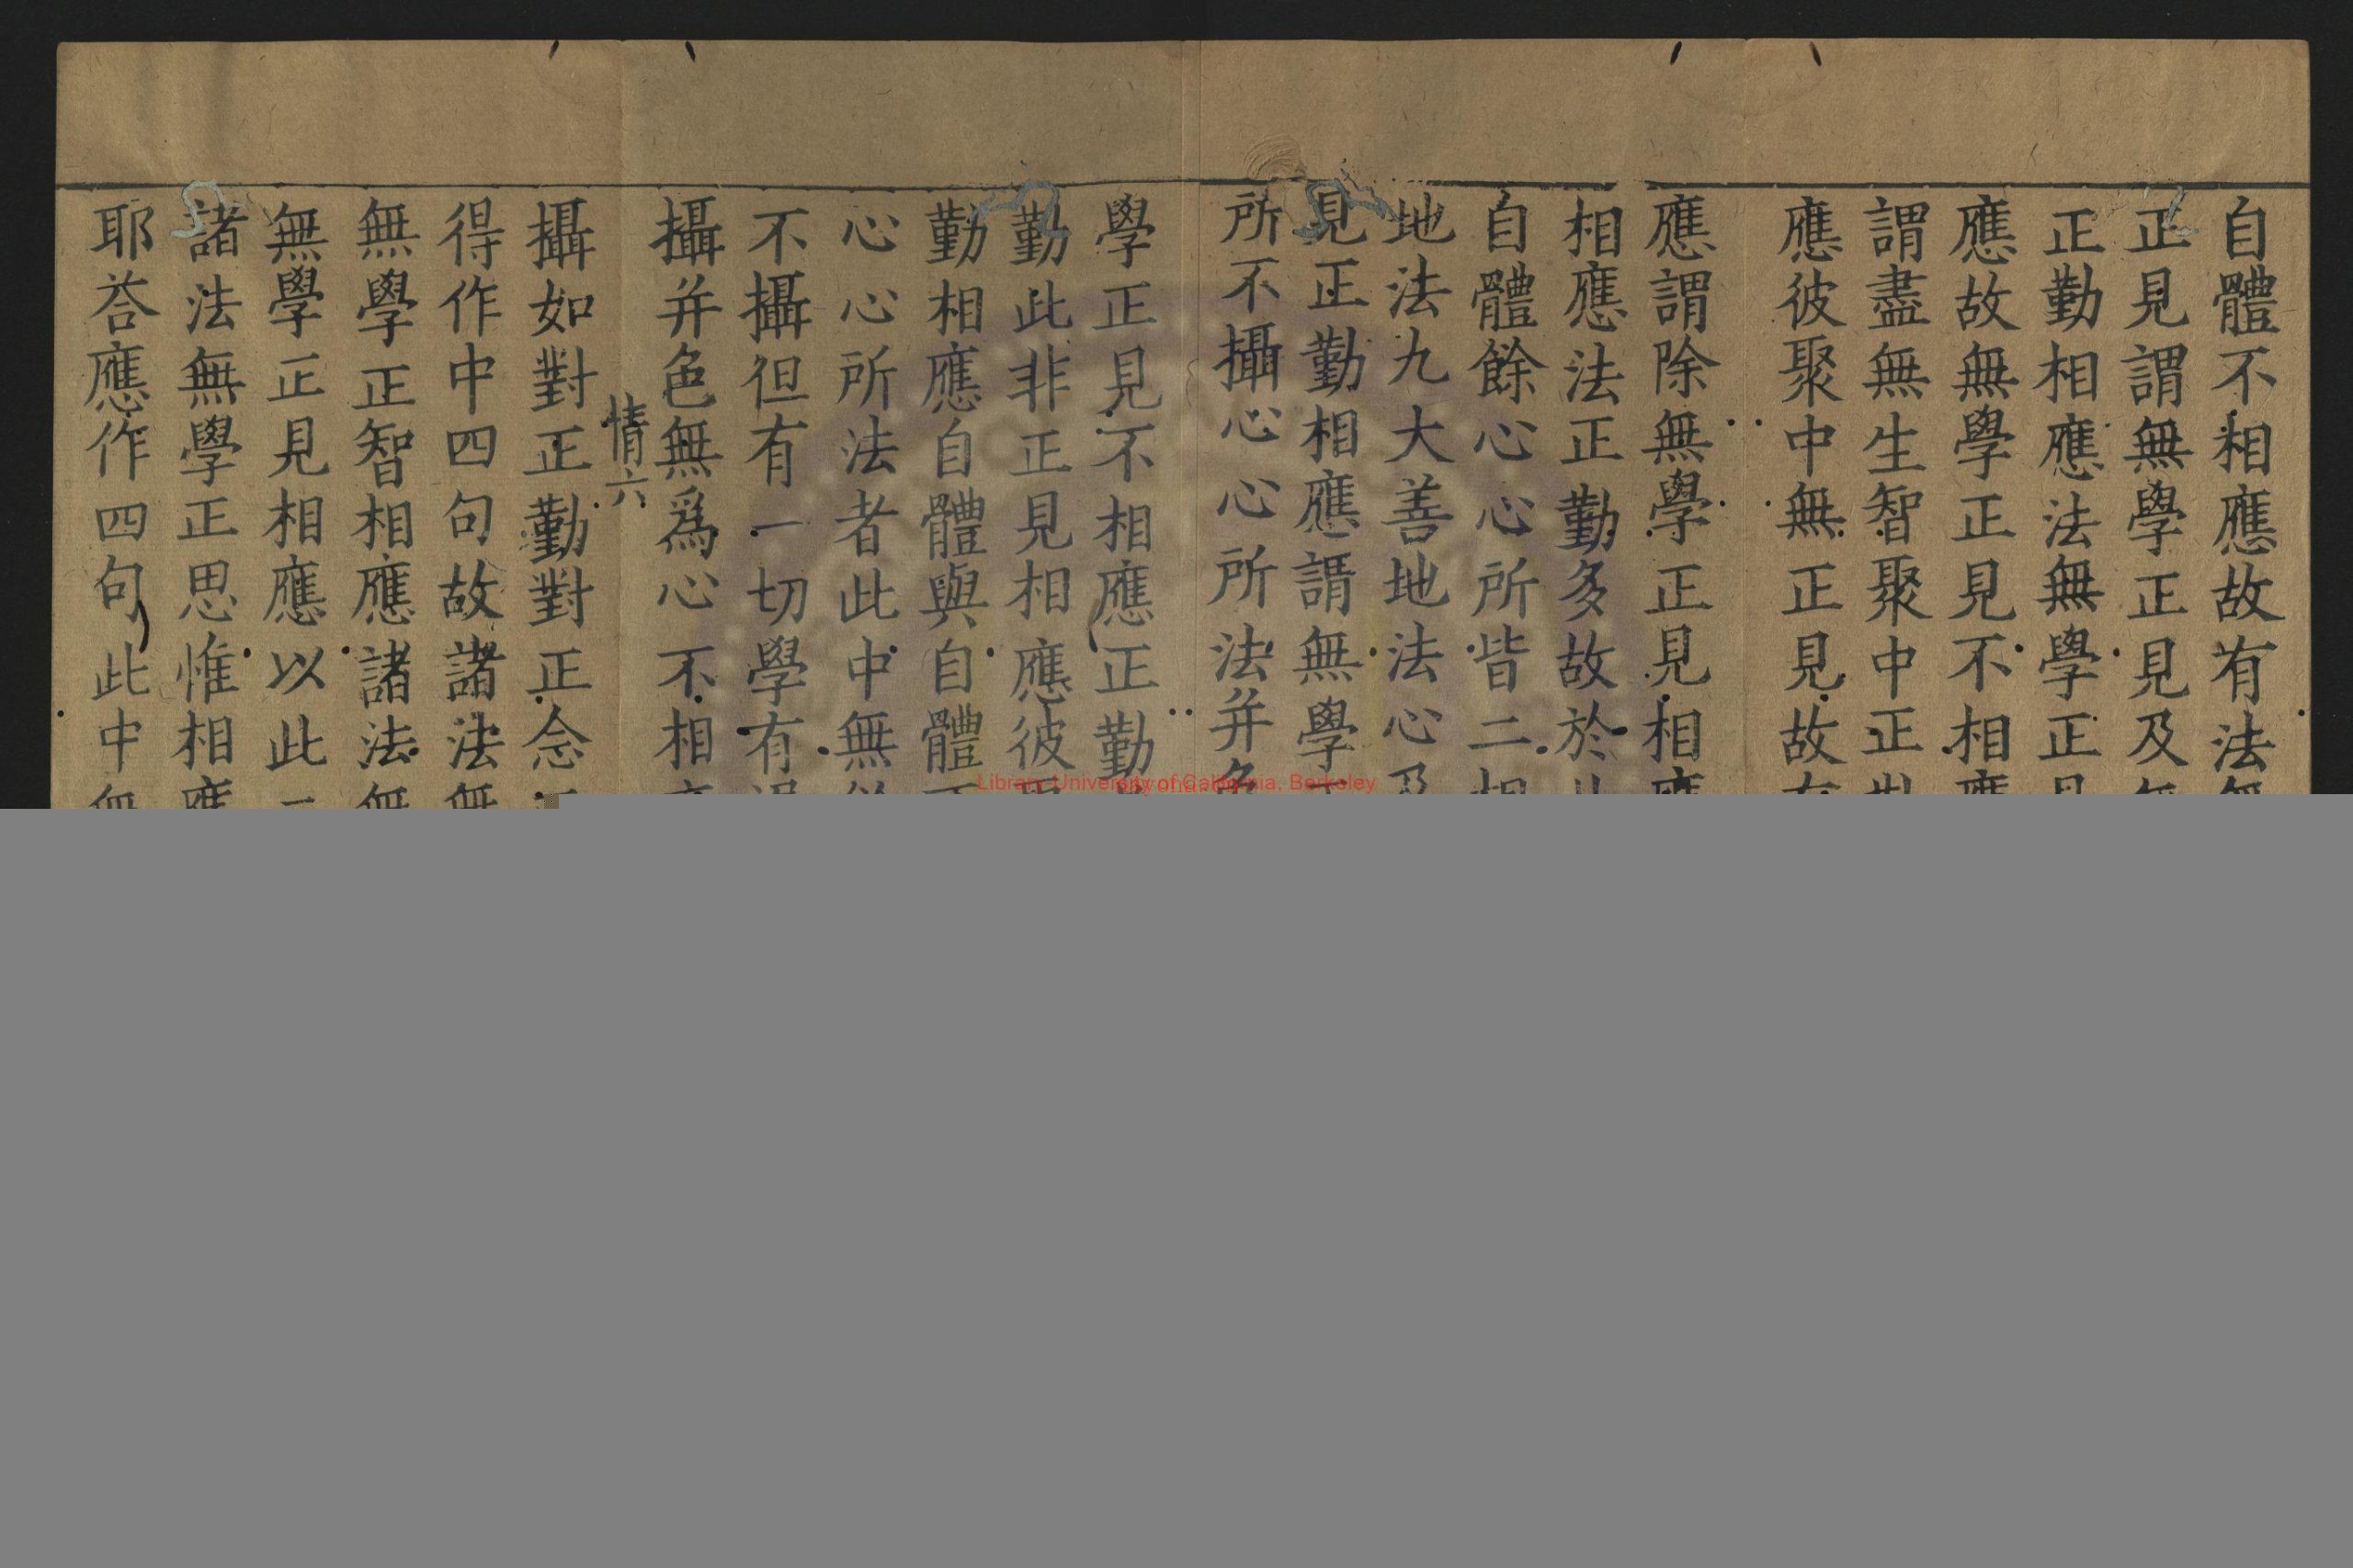 自體不相應故有法無
正見謂無學正見及無
正勤相應法無學正見
應故無學正見不相應
謂盡無生智聚中正對
應彼聚中無正見故有
應謂除無學正見相應
相應法正勤多故於
自體餘心心所皆二相
地法九大善地法心及
見正勤相應謂無學正
所不攝心心所法并色
學正見不相應正勤
勤此非正見相應彼
勤相應自體與自體不
心心所法者此中無
不攝但有一切學有漏
攝并色無爲心不相應
情六
攝如對正勤對正念
得作中四句故諸法無
無學正智相應諸法無
無學正見相應以此二
諸法無學正思惟相應
耶荅應作四句此中無
Library, University of California, Berkeley